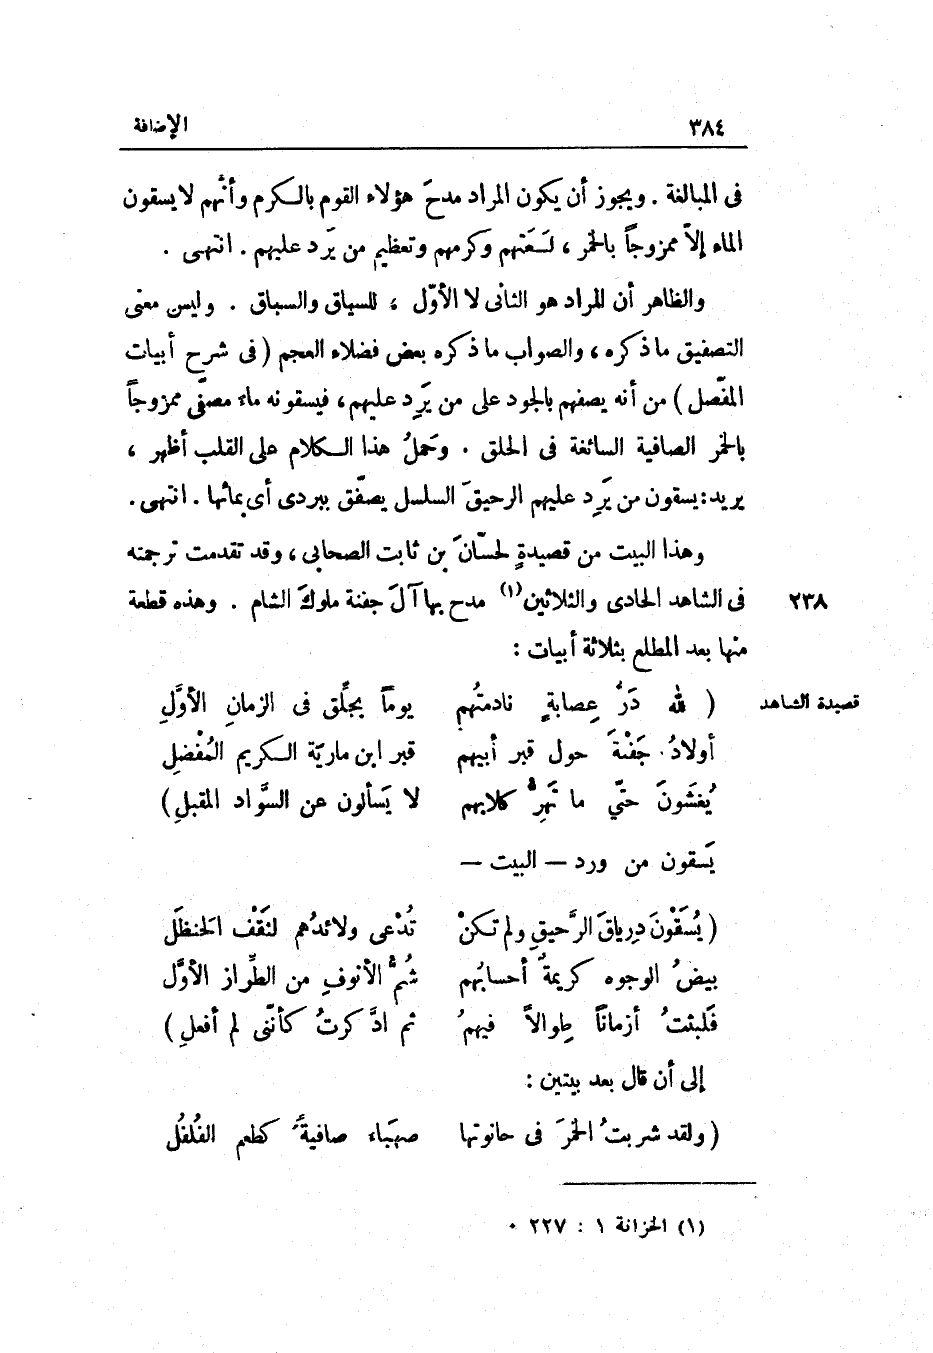 ٣٨٤ الإضافة
فى المبالغة . ويجوز أن يكون المراد مدحَ هؤلاء القوم بالكرم وأنَّهم لا يسقون
الماء إلاّ ممزوجاً بالخمر ، لسَعَتهم وكرمهم وتعظيم من يَرد عليهم . انتهى .
والظاهر أن المراد هو الثانى لا الأوّل ، للسياق والسباق . وليس معنى
التصفيق ما ذكره ، والصواب ما ذكره بعض فضلاء العجم ( فى شرح أبيات
المفّصل ) من أنه يصفهم بالجود على من يَرِد عليهم ، فيسقونه ماء مصفّى ممزوجاً
بالخمر الصافية السائغة فى الحلق . وحَملُ هذا الكلام على القلب أظهر ،
يريد : يسقون من يَرِد عليهم الرحيقَ السلسل يصفّق ببردى أى بمائها . انتهى .
وهذا البيت من قصيدةٍ لحسّانَ بن ثابت الصحابى ، وقد تقدمت ترجمته
فى الشاهد الحادى والثلاثين(١) مدح بها آلَ جفنة ملوكَ الشام . وهذه قطعة ٢٣٨
منها بعد المطلع بثلاثة أبيات :
قصيدة الشاهد
( لله دَرُّ عِصابةٍ نادمتُهم يوماً بجلِّق فى الزمانِ الأوَّلِ
أولادُ جَفْنةَ حول قبر أبيهم قبر ابن ماريّة الكريم المُفْضلِ
يُغشَونَ حتّي ما تَهِرُّ كلابهم لا يَسألون عن السَّواد المقبلِ )
يَسقون من ورد — البيت —
( يُسقَوْنَ دِرياقَ الرَّحيقِ ولم تكنْ تُدْعى ولائدُهم لنَقْف الحَنظَل
بيضُ الوجوه كريمةٌ أحسابُهم شُمُّ الأنوفِ من الطِّراز الأوَّل
فَلبثتُ أزماناً طِوالاً فيهمُ ثم ادَّكرتُ كأنَّنى لم أفعلِ )
إلى أن قال بعد بيتين :
( ولقد شربتُ الخمرَ فى حانوتها صهبَاء صافيةً كطعم الفُلفُل
(١) الخزانة ١ : ٢٢٧ .